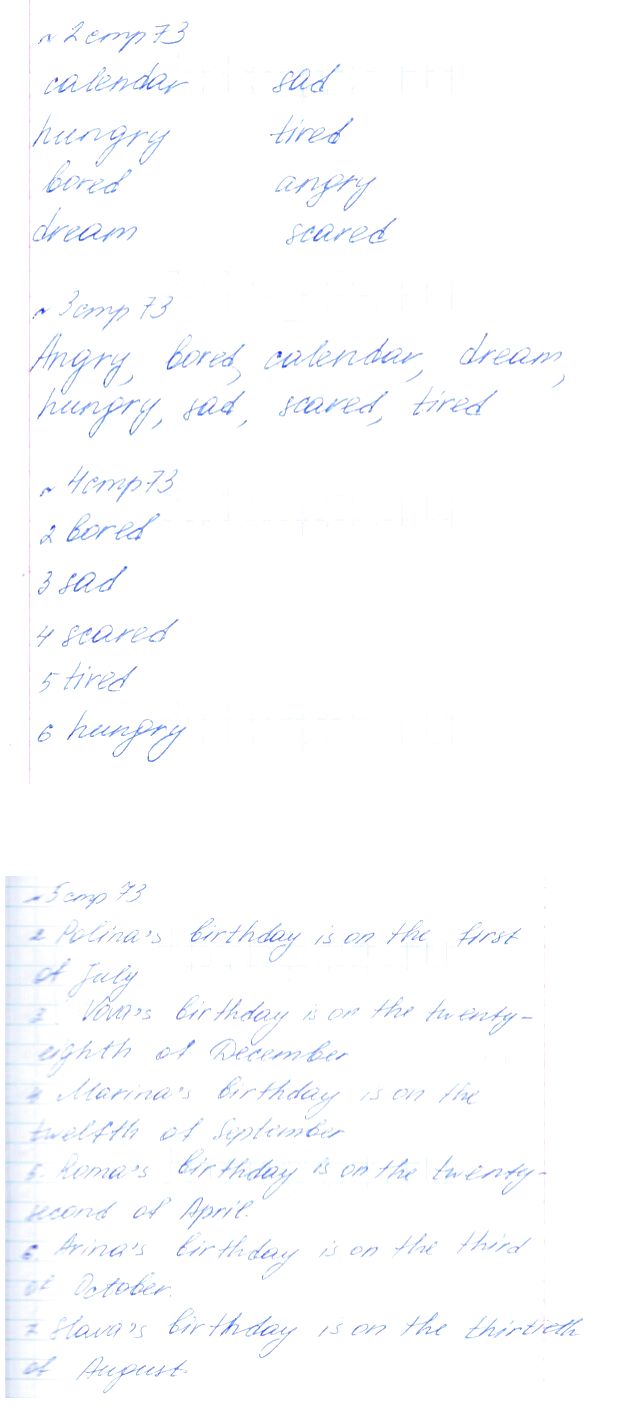 № 2 стр 73
calendar sad
hungry tired
bored angry
dream scared
№ 3 стр 73
Angry, bored, calendar, dream,
hungry, sad, scared, tired
№ 4 стр 73
2 bored
3 sad
4 scared
5 tired
6 hungry
№ 5 стр 73
2 Polina's birthday is on the first
of July
3 Vova's birthday is on the twenty-
eighth of December
4 Marina's birthday is on the
twelfth of September
5. Roma's birthday is on the twenty-
second of April.
6. Arina's birthday is on the third
of October.
7 Slava's birthday is on the thirtieth
of August.